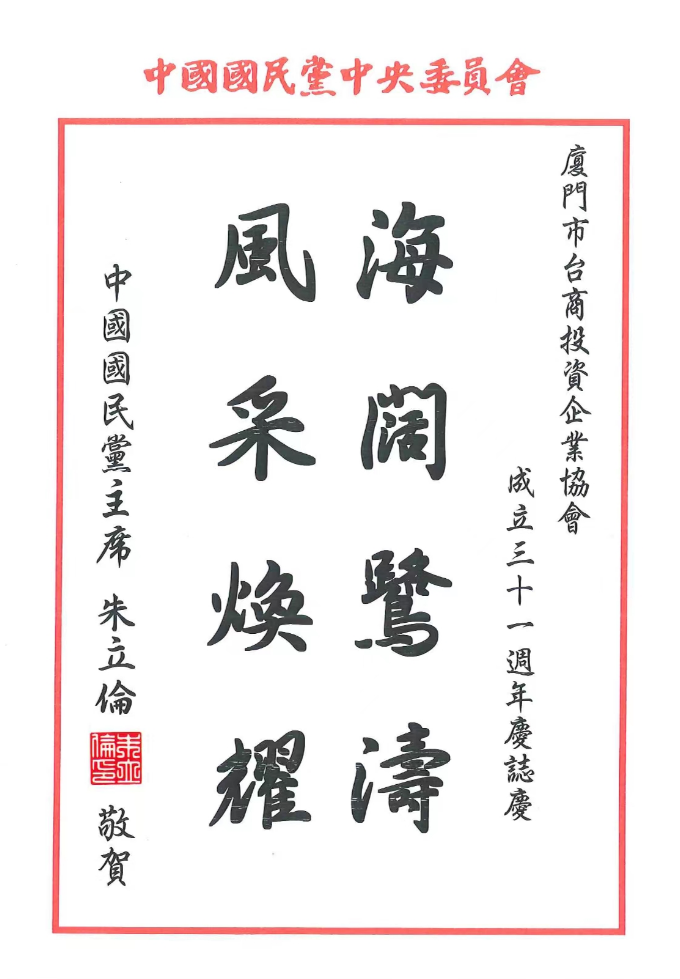 中國國民黨中央委員會
廈門市台商投資企業協會
成立三十一週年慶誌慶
海闊鷺濤
風采煥耀
中國國民黨主席 朱立倫 敬賀
朱立倫印